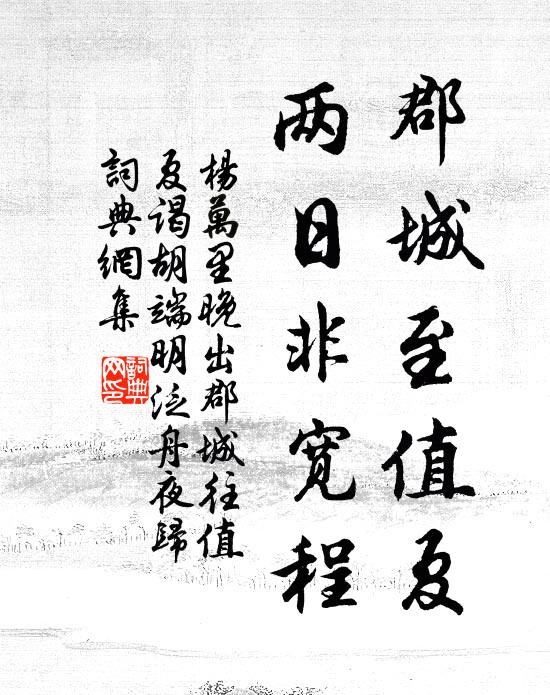 郡城至值夏
两日非宽程
楊萬里晚出郡城往值
夏谒胡端明泛舟夜歸
詞典網集
詞典
网印